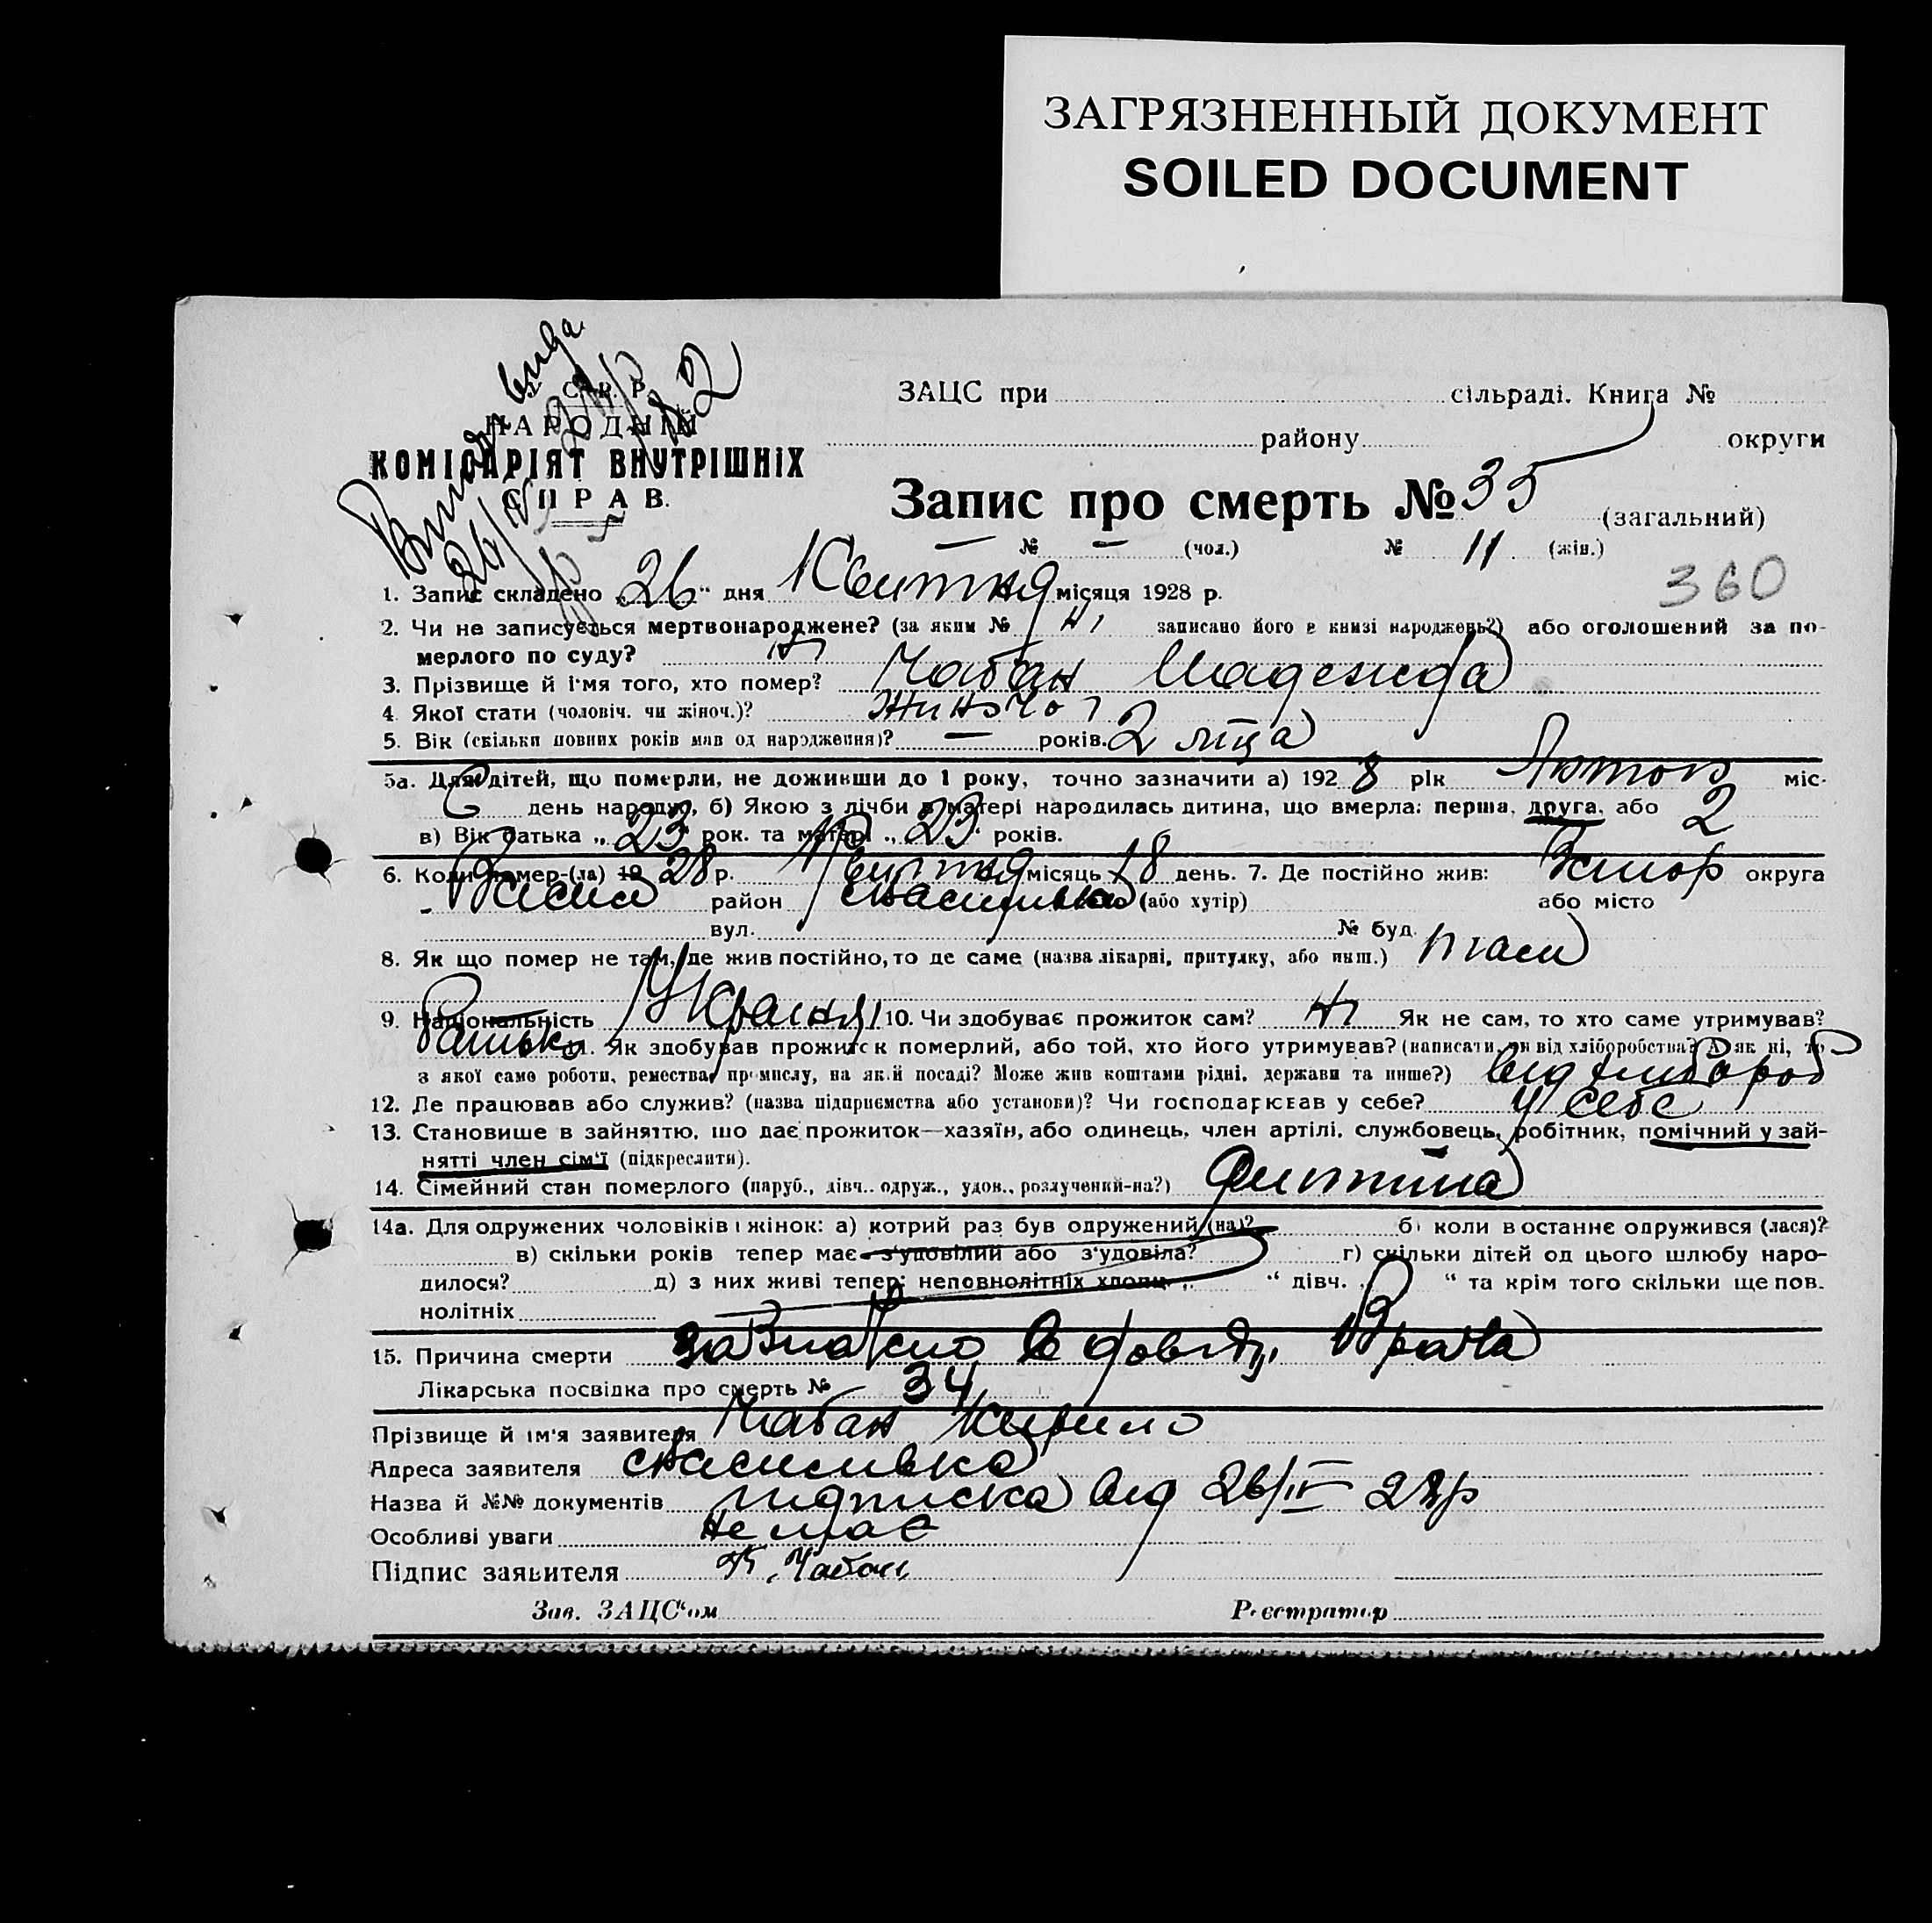 ЗАГРЯЗНЕННЫЙ ДОКУМЕНТ
SOILED DOCUMENT
У. С. Р. Р.
НАРОДНІЙ
КОМІСАРІЯТ ВНУТРІШНІХ
СПРАВ.
ЗАЦС при сільраді. Книга №
району округи
Запис про смерть № 35 (загальний)
— № — (чол.) № 11 (жін.)
360
1. Запис складено „26“ дня Квитня місяця 1928 р.
2. Чи не записується мертвонароджене? (за яким № ні записано його в книзі народжень?) або оголошений за по-
мерлого по суду? ні
3. Прізвище й ім'я того, хто помер? Чабан Надежда
4. Якої статі (чоловіч. чи жіноч.)?
5. Вік (скільки повних років мав од народження)? — років. 2 міця
5а. Для дітей, що померли, не доживши до 1 року, точно зазначити а) 1928 рік міс.
день народж., б) Якою з лічби в матері народилась дитина, що вмерла: перша, друга, або 2
в) Вік батька „23 рок. та матері „23“ років.
6. Коли помер-(ла) 19 28 р. Квитня місяць 18 день. 7. Де постійно жив: округа
район (або хутір) або місто
вул. № буд.
8. Як що помер не там, де жив постійно, то де саме (назва лікарні, притулку, або инш.)
9. Національність 10. Чи здобуває прожиток сам? ні Як не сам, то хто саме утримував?
Батько 11. Як здобував прожиток померлий, або той, хто його утримував? (написати, чи від хліборобства? А як ні, то
з якої саме роботи, ремества, промислу, на якій посаді? Може жив коштами рідні, держави та инше?) від хлибороб
12. Де працював або служив? (назва підприємства або установи)? Чи господарював у себе? у себе
13. Становище в зайнятто, що дає прожиток—хазяїн, або одинець, член артілі, службовець, робітник, помічний у зай-
нятті член сім'ї (підкреслити).
14. Сімейний стан померлого (паруб., дівч.. одруж., удов., розлучений-на?) дитина
14а. Для одружених чоловіків і жінок: а) котрий раз був одружений (на)? б) коли востаннє одружився (лася)?
в) скільки років тепер має з'удовілий або з'удовіла? г) скільки дітей од цього шлюбу наро-
дилося? д) з них живі тепер: неповнолітніх хлопц. „ “ дівч. „ “ та крім того скільки ще пов.
нолітніх
15. Причина смерти в довідц. Врача
Лікарська посвідка про смерть № 34
Прізвище й ім'я заявителя Чабан Кирило
Адреса заявителя
Назва й №№ документів підписка від 26/IV 28р
Особливі уваги не має
Підпис заявителя К. Чабан
Зав. ЗАЦС'ом Реєстратор